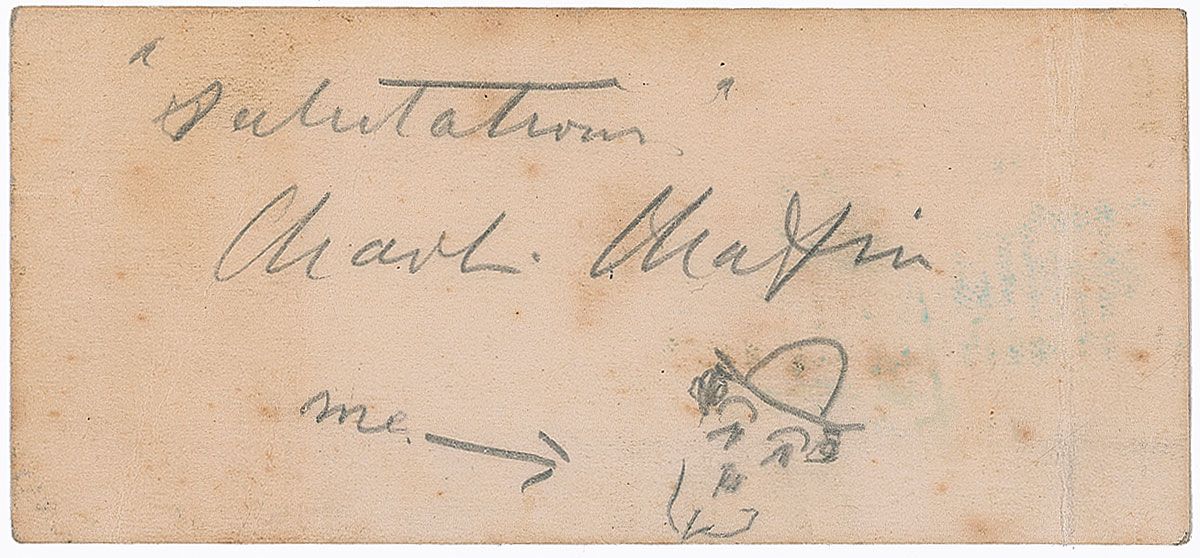 "Salutations"
Charli. Chaplin
me.